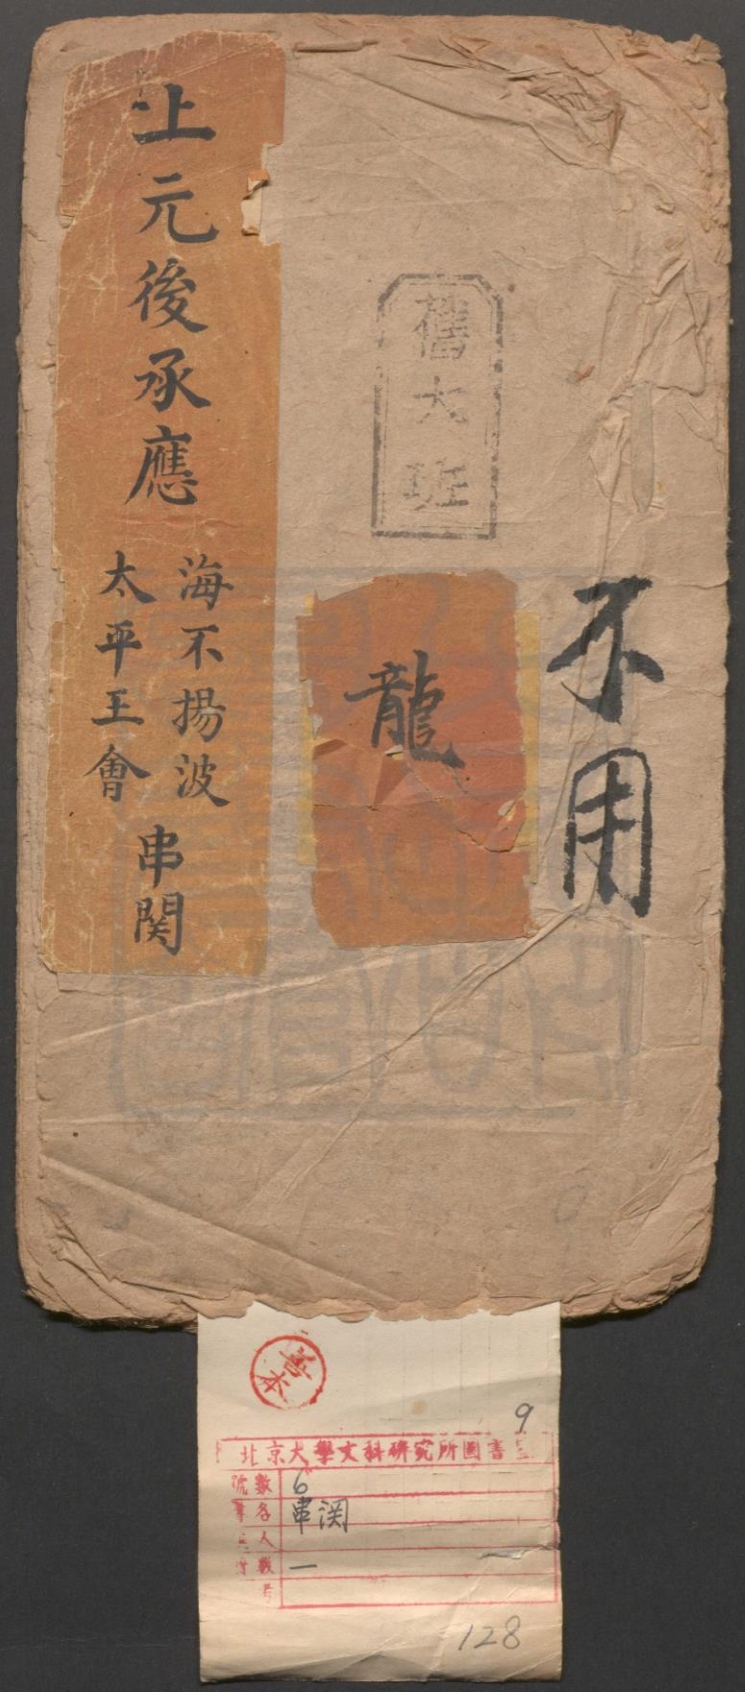 上元後承應
海不揚波
太平王會
串関
舊大班
龍
不用
善本
9
北京大學文科研究所圖書
號數 6
書名 串関
人
數 一
128